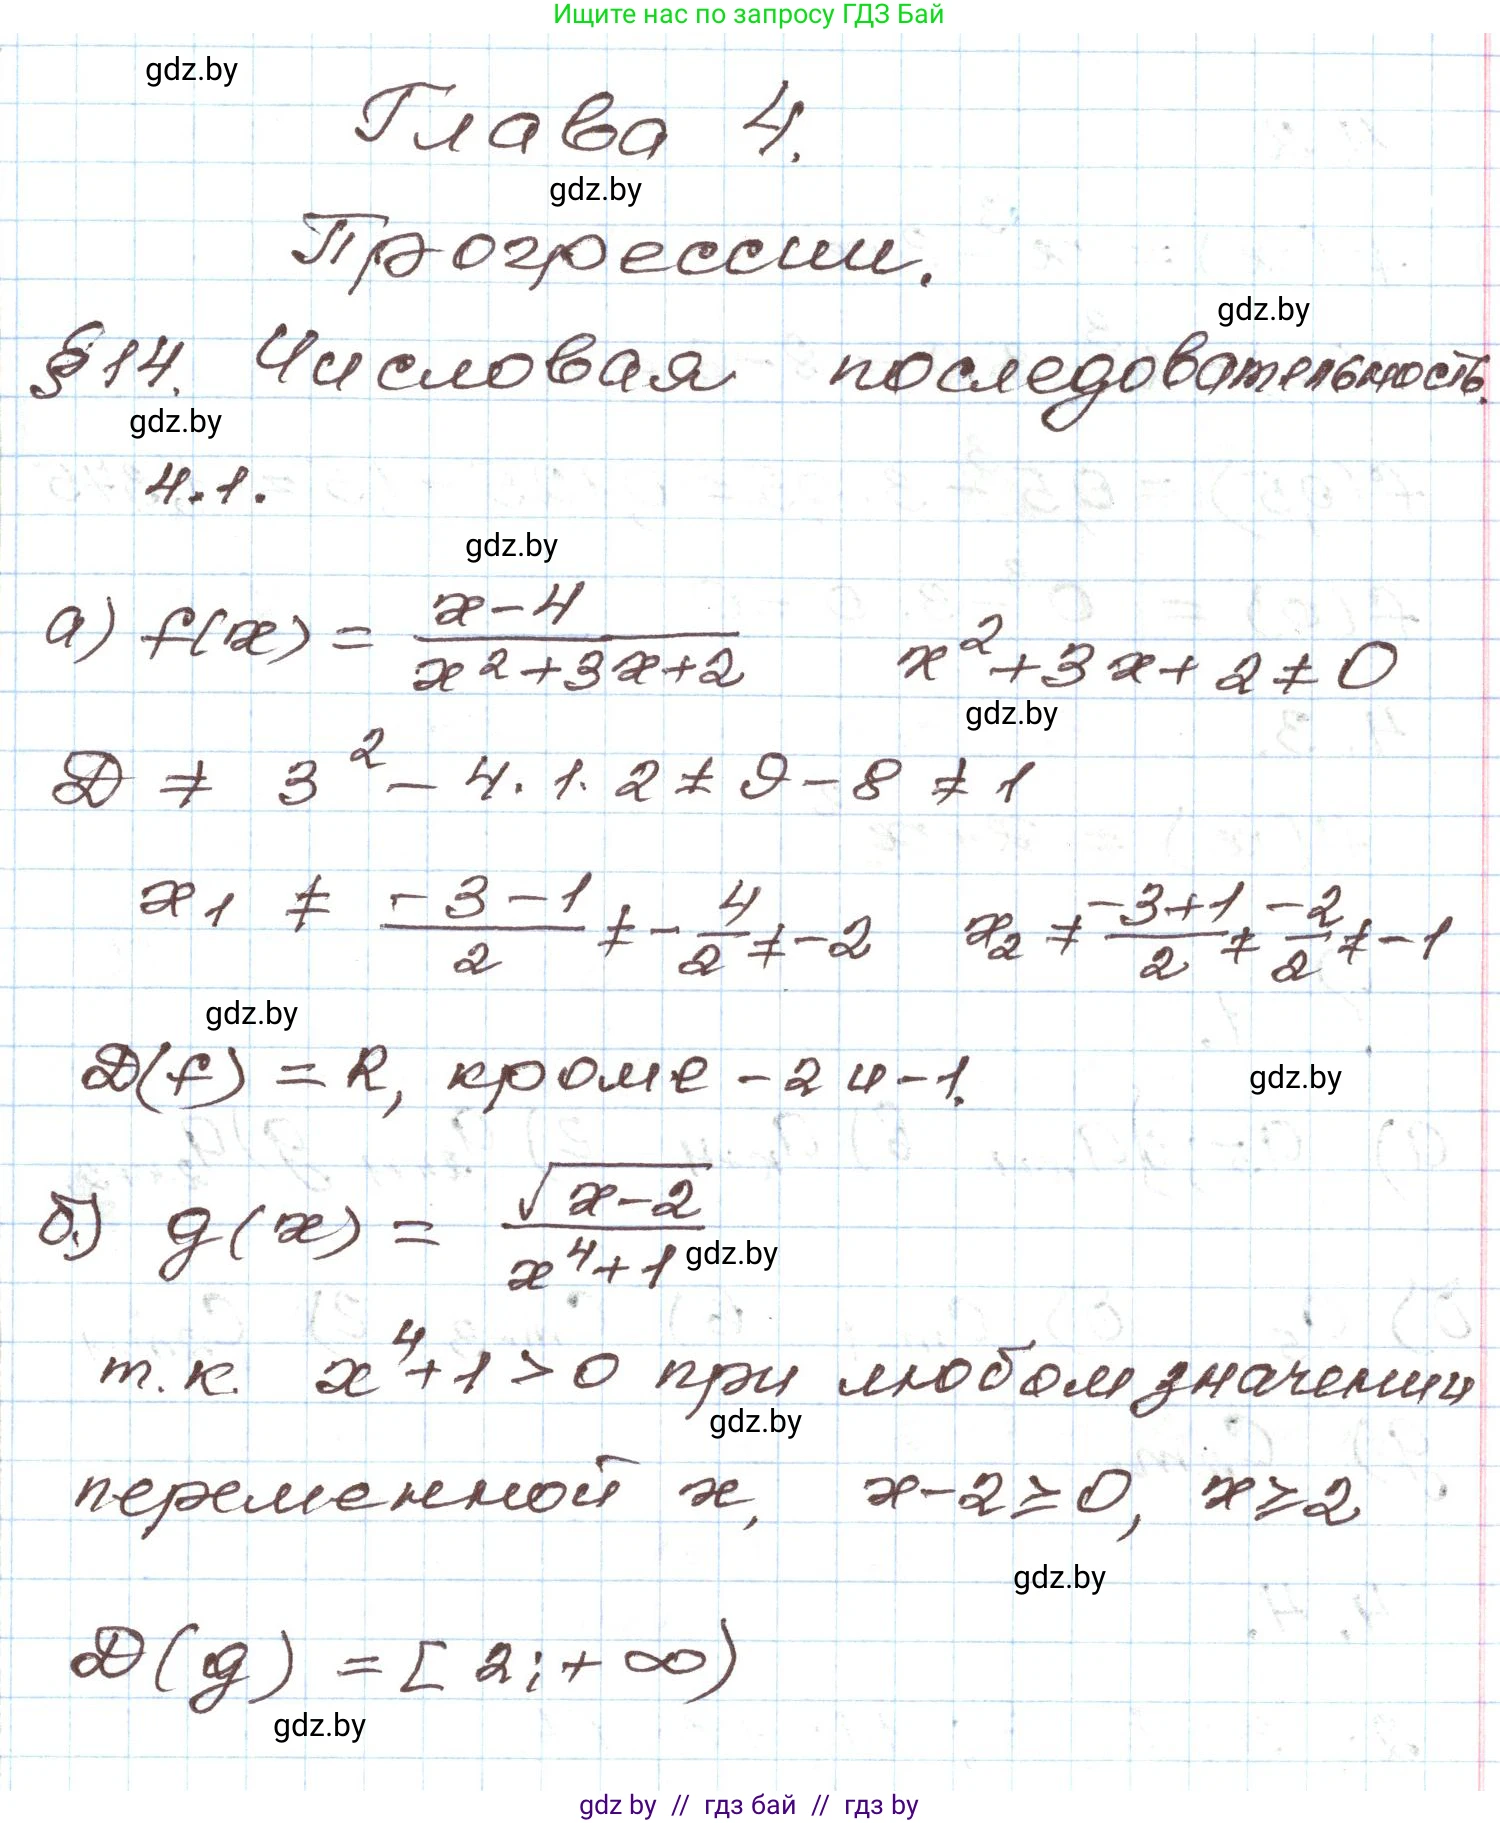 Ищите нас по запросу ГДЗ Бай
gdz.by
Глава 4.
gdz.by
Прогрессии.
gdz.by
§14. Числовая последовательность.
gdz.by
4.1.
gdz.by
а) f(x) = (x-4)/(x²+3x+2)   x²+3x+2≠0
gdz.by
D ≠ 3² - 4·1·2 ≠ 9-8 ≠ 1
x₁ ≠ (-3-1)/2 ≠ -4/2 ≠ -2   x₂ ≠ (-3+1)/2 ≠ -2/2 ≠ -1
gdz.by
D(f) = R, кроме -2 и -1.
gdz.by
б) g(x) = √(x-2)/(x⁴+1)
gdz.by
т.к. x⁴+1>0 при любом значении
gdz.by
переменной x, x-2≥0, x≥2
gdz.by
D(g) = [2;+∞)
gdz.by
gdz by // гдз бай // гдз by